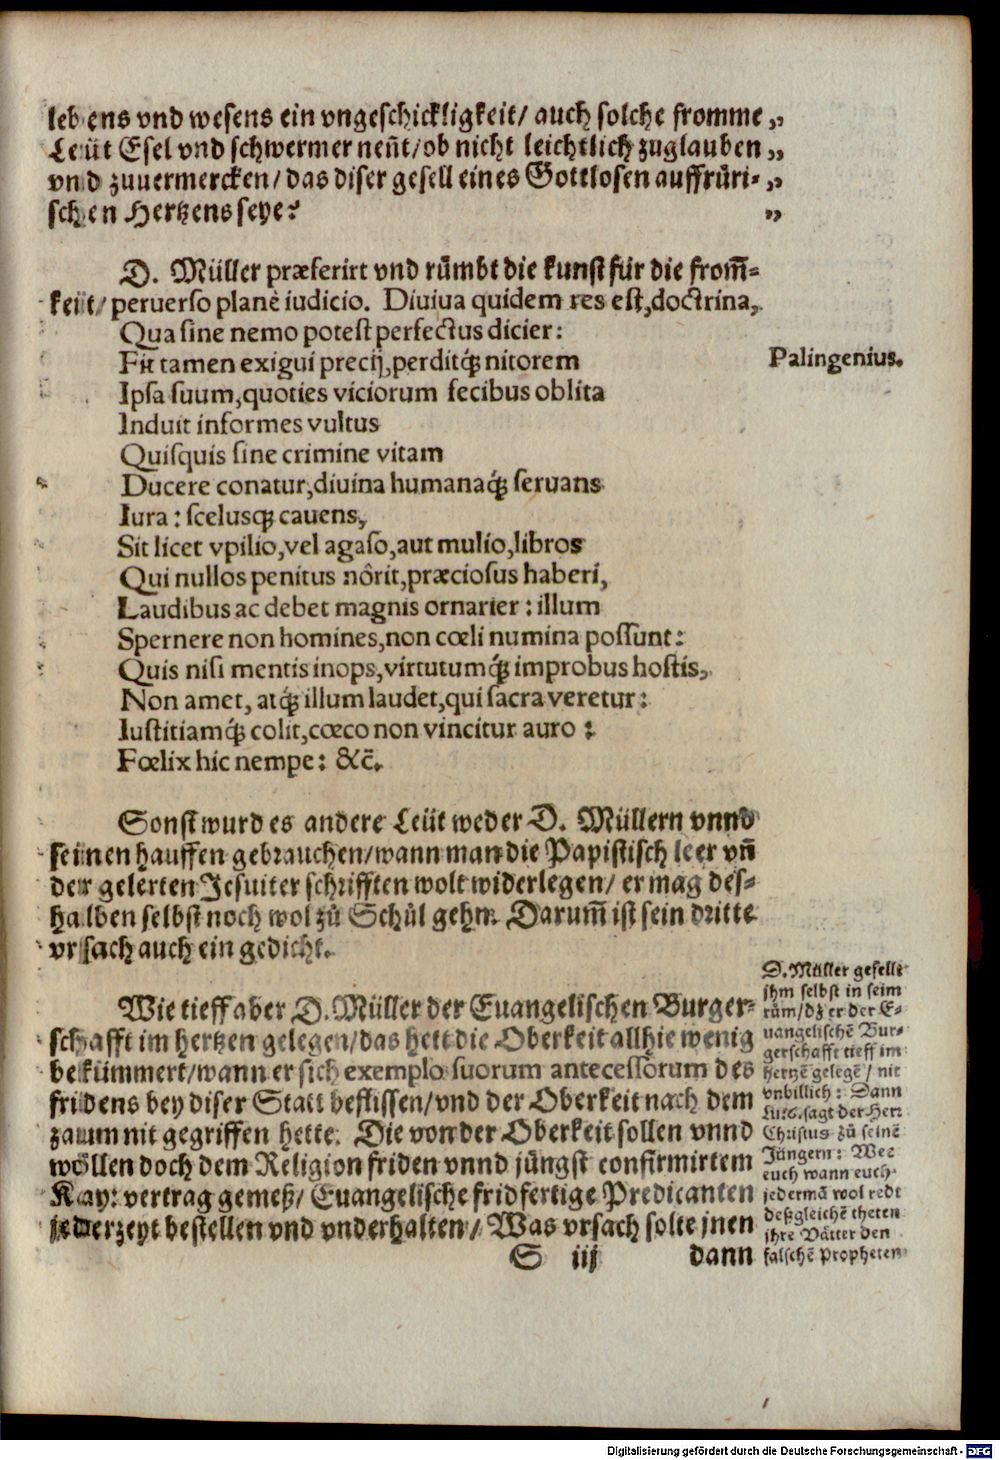 lebens vnd wesens ein vngeschickligkeit/ auch solche fromme „
Leüt Esel vnd schwermer neñt/ob nicht leichtlich zuglauben „
vnd zuuermercken/das diser gesell eines Gottlosen auffrüri- „
schen Hertzens seye? „
D. Müller præferirt vnd růmbt die kunst für die from̃-
keit/ peruerso planè iudicio. Diuiua quidem res est, doctrina,
Qua sine nemo potest perfectus dicier:
Fit tamen exigui precij, perditq́; nitorem
Palingenius.
Ipsa suum, quoties viciorum fecibus oblita
Induit informes vultus
Quisquis sine crimine vitam
Ducere conatur, diuina humanaq́; seruans
Iura: scelusq; cauens,
Sit licet vpilio, vel agaso, aut mulio, libros
Qui nullos penitus nôrit, præciosus haberi,
Laudibus ac debet magnis ornarier: illum
Spernere non homines, non cœli numina possunt:
Quis nisi mentis inops, virtutumq́; improbus hostis,
Non amet, atq́; illum laudet, qui sacra veretur:
Iustitiamq́; colit, cœco non vincitur auro:
Fœlix hic nempe: &c̃.
Sonst wurd es andere Leüt weder D. Müllern vnnd
seinen hauffen gebrauchen/wann man die Papistisch leer vñ
der gelerten Jesuiter schrifften wolt widerlegen/ er mag des-
halben selbst noch wol zů Schůl gehn. Darum̃ ist sein dritte
vrsach auch ein gedicht.
Wie tieff aber D. Müller der Euangelischen Burger-
schafft im hertzen gelegen/das hett die Oberkeit allhie wenig
bekümmert/wann er sich exemplo suorum antecessorum des
fridens bey diser Statt beflissen/vnd der Oberkeit nach dem
zaum nit gegriffen hette. Die von der Oberkeit sollen vnnd
wöllen doch dem Religion friden vnnd jüngst confirmirtem
Kay: vertrag gemeß/ Euangelische fridfertige Predicanten
jederzeyt bestellen vnd vnderhalten/ Was vrsach solte jnen
S iij dann
D. Müller gefellt
jhm selbst in seim
rům/dz er der E-
uangelischẽ Bur-
gerschafft tieff im
hertzẽ gelegẽ/ nit
vnbillich: Dann
Luc.6. sagt der Herr
Christus zů seinẽ
Jüngern: Wee
euch wann euch
jedermã wol redt
deßgleichẽ theten
jhre Vätter den
falschẽ Propheten
Digitalisierung gefördert durch die Deutsche Forschungsgemeinschaft - DFG